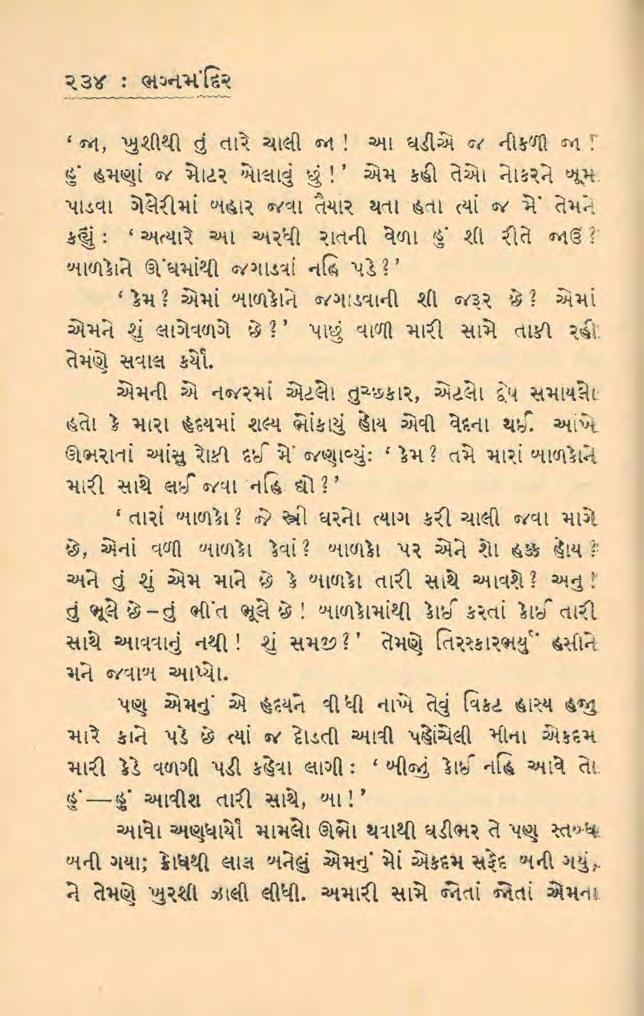 ૨૩૪ : ભગ્નમંદિર
‘ જા, ખુશીથી તું તારે ચાલી જા ! આ ઘડીએ જ નીકળી જા !
હું હમણાં જ મોટર બોલાવું છું !’ એમ કહી તેઓ નોકરને બૂમ
પાડવા ગેલેરીમાં બહાર જવા તૈયાર થતા હતા ત્યાં જ મેં તેમને
કહ્યું : ‘ અત્યારે આ અરધી રાતની વેળા હું શી રીતે જાઉં ?
બાળકોને ઊંઘમાંથી જગાડવાં નહિ પડે ?’
‘ કેમ ? એમાં બાળકોને જગાડવાની શી જરૂર છે ? એમાં
એમને શું લાગેવળગે છે ?’ પાછું વાળી મારી સામે તાકી રહી
તેમણે સવાલ કર્યો.
એમની એ નજરમાં એટલો તુચ્છકાર, એટલો દ્વેષ સમાયલો
હતો કે મારા હૃદયમાં શલ્ય ભોંકાયું હોય એવી વેદના થઈ. આંખે
ઊભરાતાં આંસુ રોકી દઈ મેં જણાવ્યું: ‘ કેમ ? તમે મારાં બાળકોને
મારી સાથે લઈ જવા નહિ દ્યો ?’
‘ તારાં બાળકો ? જે સ્ત્રી ઘરનો ત્યાગ કરી ચાલી જવા માગે
છે, એનાં વળી બાળકો કેવાં ? બાળકો પર એને શો હક્ક હોય ?
અને તું શું એમ માને છે કે બાળકો તારી સાથે આવશે ? અનુ !
તું ભૂલે છે – તું ભીંત ભૂલે છે ! બાળકોમાંથી કોઈ કરતાં કોઈ તારી
સાથે આવવાનું નથી ! શું સમજી ?’ તેમણે તિરસ્કારભર્યું હસીને
મને જવાબ આપ્યો.
પણ એમનું એ હૃદયને વીંધી નાખે તેવું વિકટ હાસ્ય હજુ
મારે કાને પડે છે ત્યાં જ દોડતી આવી પહોંચેલી મીના એકદમ
મારી કેડે વળગી પડી કહેવા લાગી : ‘ બીજું કોઈ નહિ આવે તો
હું — હું આવીશ તારી સાથે, બા !’
આવો અણધાર્યો મામલો ઊભો થવાથી ઘડીભર તે પણ સ્તબ્ધ
બની ગયા; ક્રોધથી લાલ બનેલું એમનું મોં એકદમ સફેદ બની ગયું,
ને તેમણે ખુરશી ઝાલી લીધી. અમારી સામે જોતાં જોતાં એમના